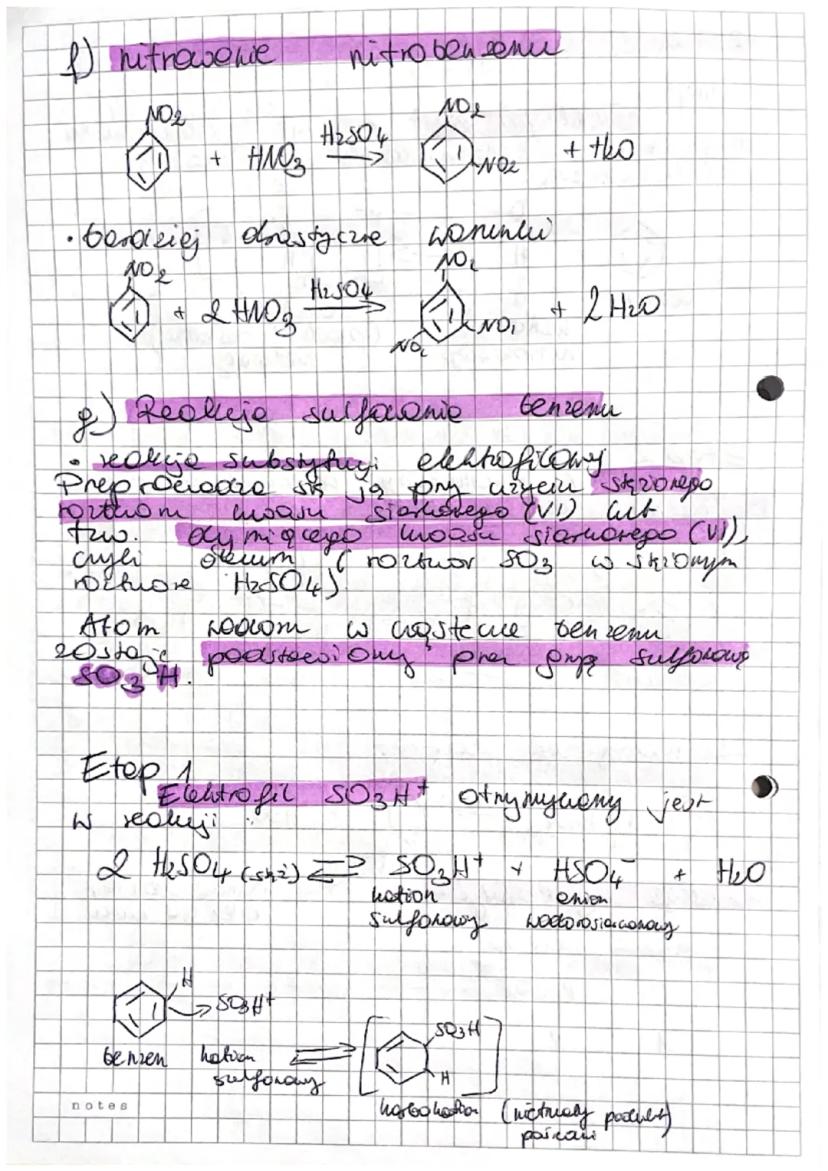 f) nitrowanie nitrobenzenu
NO2 NO2
+ HNO3 H2SO4 + H2O
NO2
• bardziej drastyczne warunki
NO2 NO2
+ 2 HNO3 H2SO4 + 2 H2O
NO2
NO2
g) Reakcja sulfowania benzenu
• reakcja substytucji elektrofilowy
Przeprowadza się ją przy użyciu stężonego
roztworu kwasu siarkowego (VI) lub
tzw. dymiącego kwasu siarkowego (VI),
czyli oleum (roztwor SO3 w stężonym
roztworze H2SO4)
Atom wodoru w cząsteczce benzenu
zostaje podstawiony przez grupę sulfonową
SO3H.
Etap 1
Elektrofil SO3H+ otrzymywany jest
w reakcji :
2 H2SO4 (stęż) ⇌ SO3H+ + HSO4- + H2O
kation anion
sulfonowy wodorosiarczanowy
H
SO3H+
SO3H
benzen kation ⇌
H
sulfonowy
karbokation (nietrwały produkt
pośredni)
notes